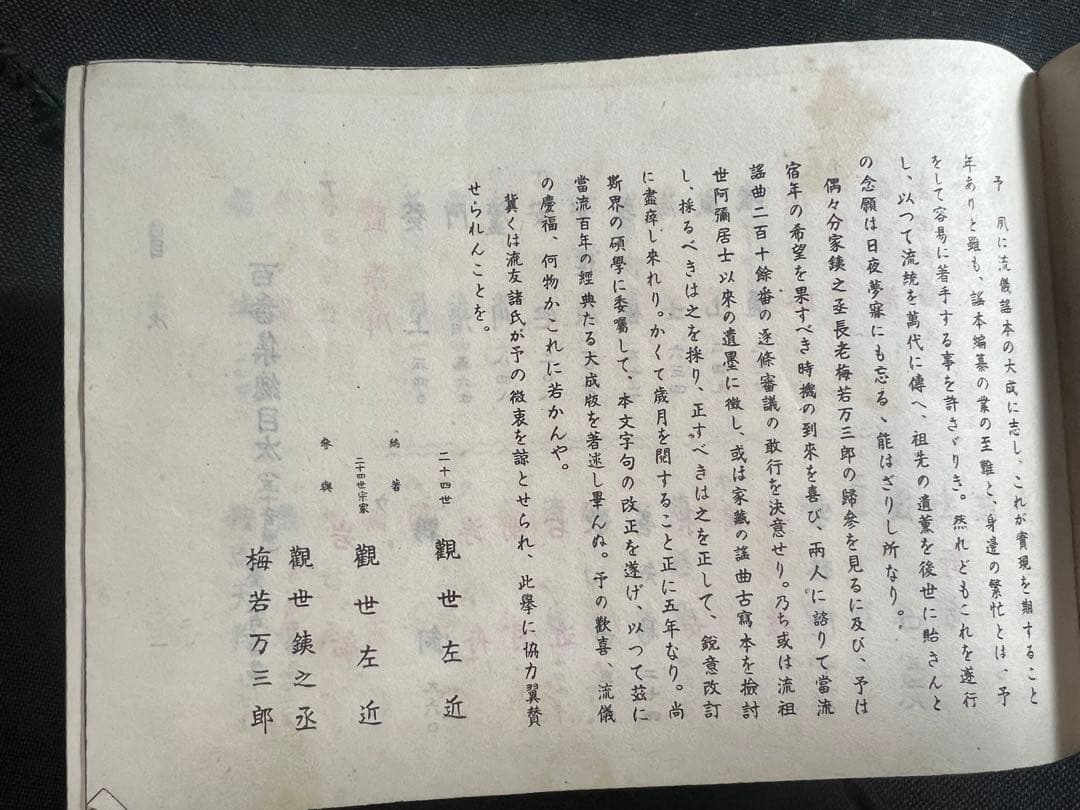 予夙に流儀謠本の大成に志し、これが實現を期すること
年ありと雖も、謠本編纂の業の至難と、身邊の繁忙とは、予
をして容易に著手する事を許さゞりき。然れどもこれを遂行
し、以つて流統を萬代に傳へ、祖先の遺薫を後世に貽さんと
の念願は日夜夢寐にも忘るゝ能はざりし所なり。
偶々分家銕之丞長老梅若万三郎の歸參を見るに及び、予は
宿年の希望を果すべき時機の到來を喜び、兩人に諮りて當流
謠曲二百十餘番の逐條審議の敢行を決意せり。乃ち或は流祖
世阿彌居士以來の遺墨に徴し、或は家藏の謠曲古寫本を檢討
し、採るべきは之を採り、正すべきは之を正して、鋭意改訂
に盡瘁し來れり。かくて歳月を閲すること正に五年なり。尚
斯界の碩學に委囑して、本文字句の改正を遂げ、以つて茲に
當流百年の經典たる大成版を著述し畢んぬ。予の歡喜、流儀
の慶福、何物かこれに若かんや。
冀くは流友諸氏が予の微衷を諒とせられ、此擧に協力翼贊
せられんことを。
二十四世 觀世左近
總著 二十四世宗家 觀世左近
參與 觀世銕之丞
梅若万三郎
百番集總目次
目次
一